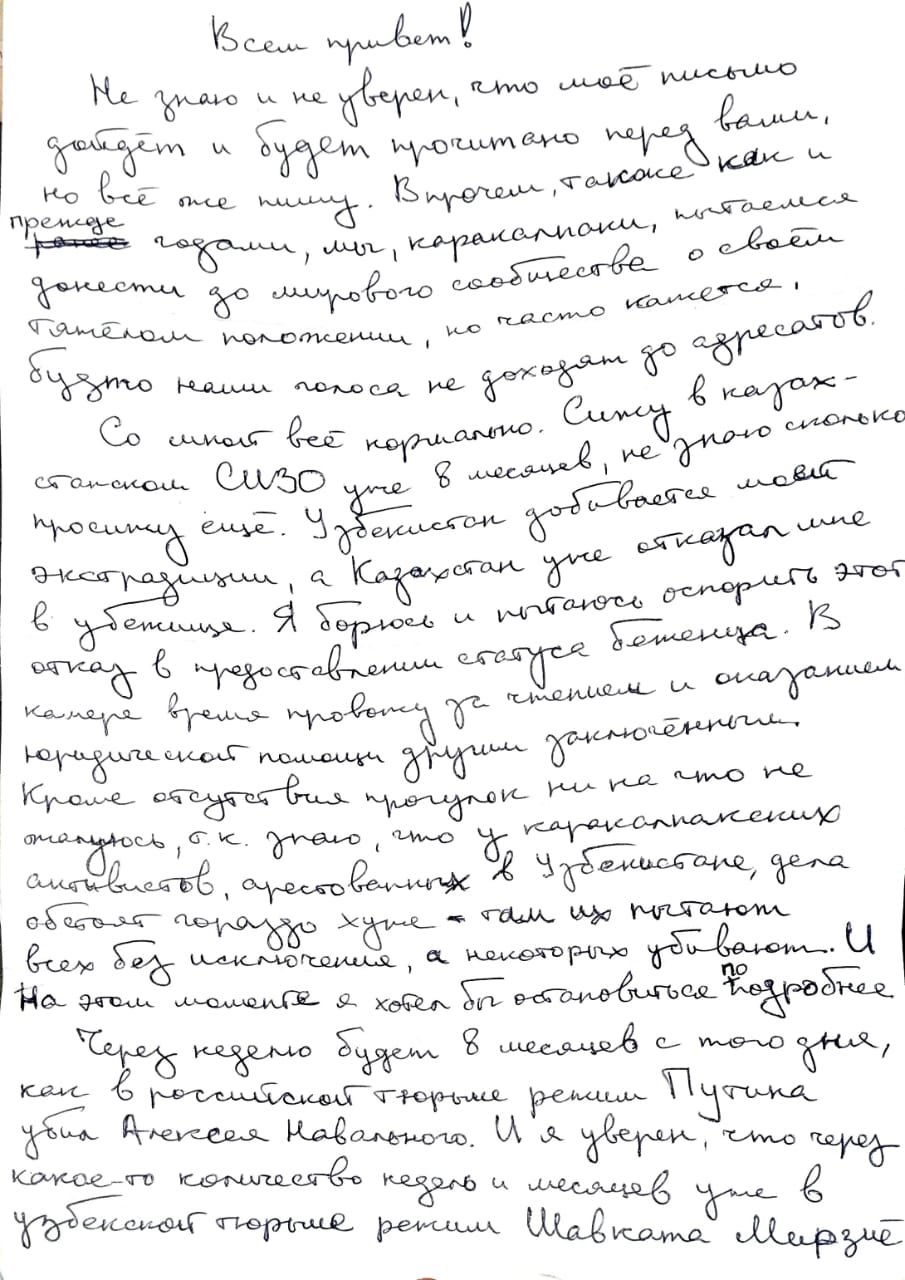 Всем привет!
Не знаю и не уверен, что моё письмо
дойдёт и будет прочитано перед вами,
но всё же пишу. Впрочем, также как и
прежде
ранее годами, мы, каракалпаки, пытаемся
донести до мирового сообщества о своём
тяжёлом положении, но часто кажется,
будто наши голоса не доходят до адресатов.
Со мной всё нормально. Сижу в казах-
станском СИЗО уже 8 месяцев, не знаю сколько
просижу ещё. Узбекистан добивается моей
экстрадиции, а Казахстан уже отказал мне
в убежище. Я борюсь и пытаюсь оспорить этот
отказ в предоставлении статуса беженца. В
камере время провожу за чтением и оказанием
юридической помощи другим заключённым.
Кроме отсутствия прогулок ни на что не
жалуюсь, т.к. знаю, что у каракалпакских
активистов, арестованных в Узбекистане, дела
обстоят гораздо хуже - там их пытают
всех без исключения, а некоторых убивают. И
на этом моменте я хотел бы остановиться поподробнее
Через неделю будет 8 месяцев с того дня,
как в российской тюрьме режим Путина
убил Алексея Навального. И я уверен, что через
какое-то количество недель и месяцев уже в
узбекской тюрьме режим Шавката Мирзиё